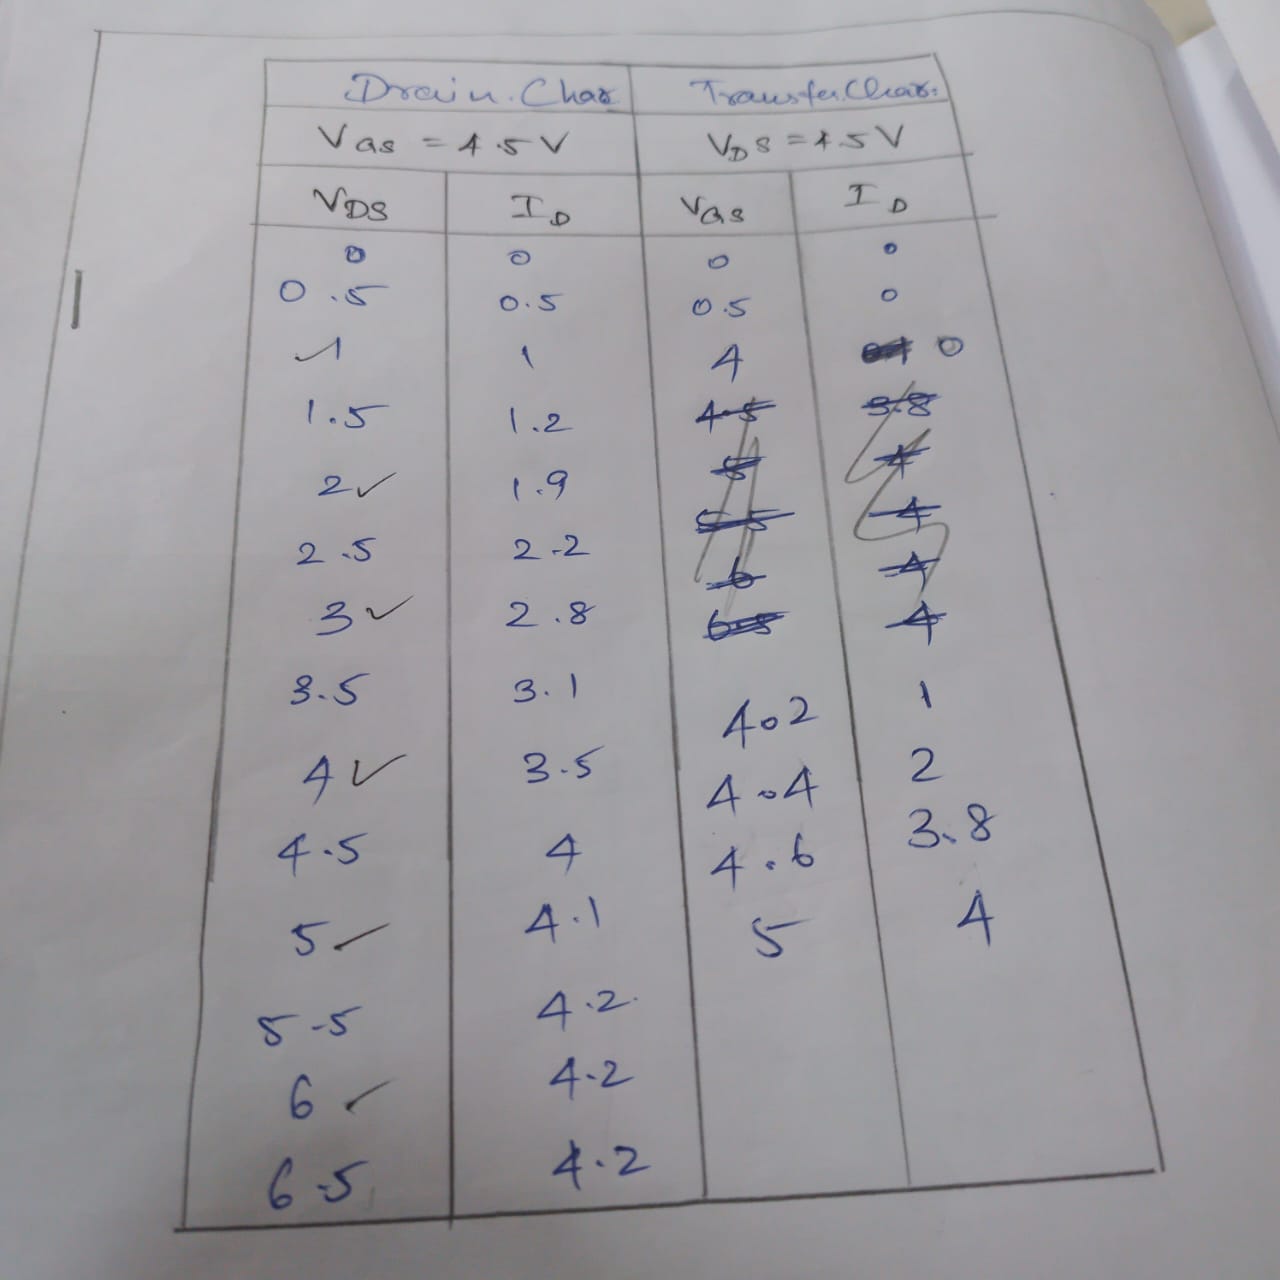 Drain. Char Transfer. Char.
VGS = 4.5V VDS = 4.5V
VDS ID VGS ID
0 0 0 0
0.5 0.5 0.5 0
1 1 4 0
1.5 1.2 4.5 3.8
2 ✓ 1.9 5 4
2.5 2.2 5.5 4
3 ✓ 2.8 6 4
6.5 4
3.5 3.1 4.2 1
4 ✓ 3.5 4.4 2
4.5 4 4.6 3.8
5 ✓ 4.1 5 4
5.5 4.2
6 ✓ 4.2
6.5 4.2